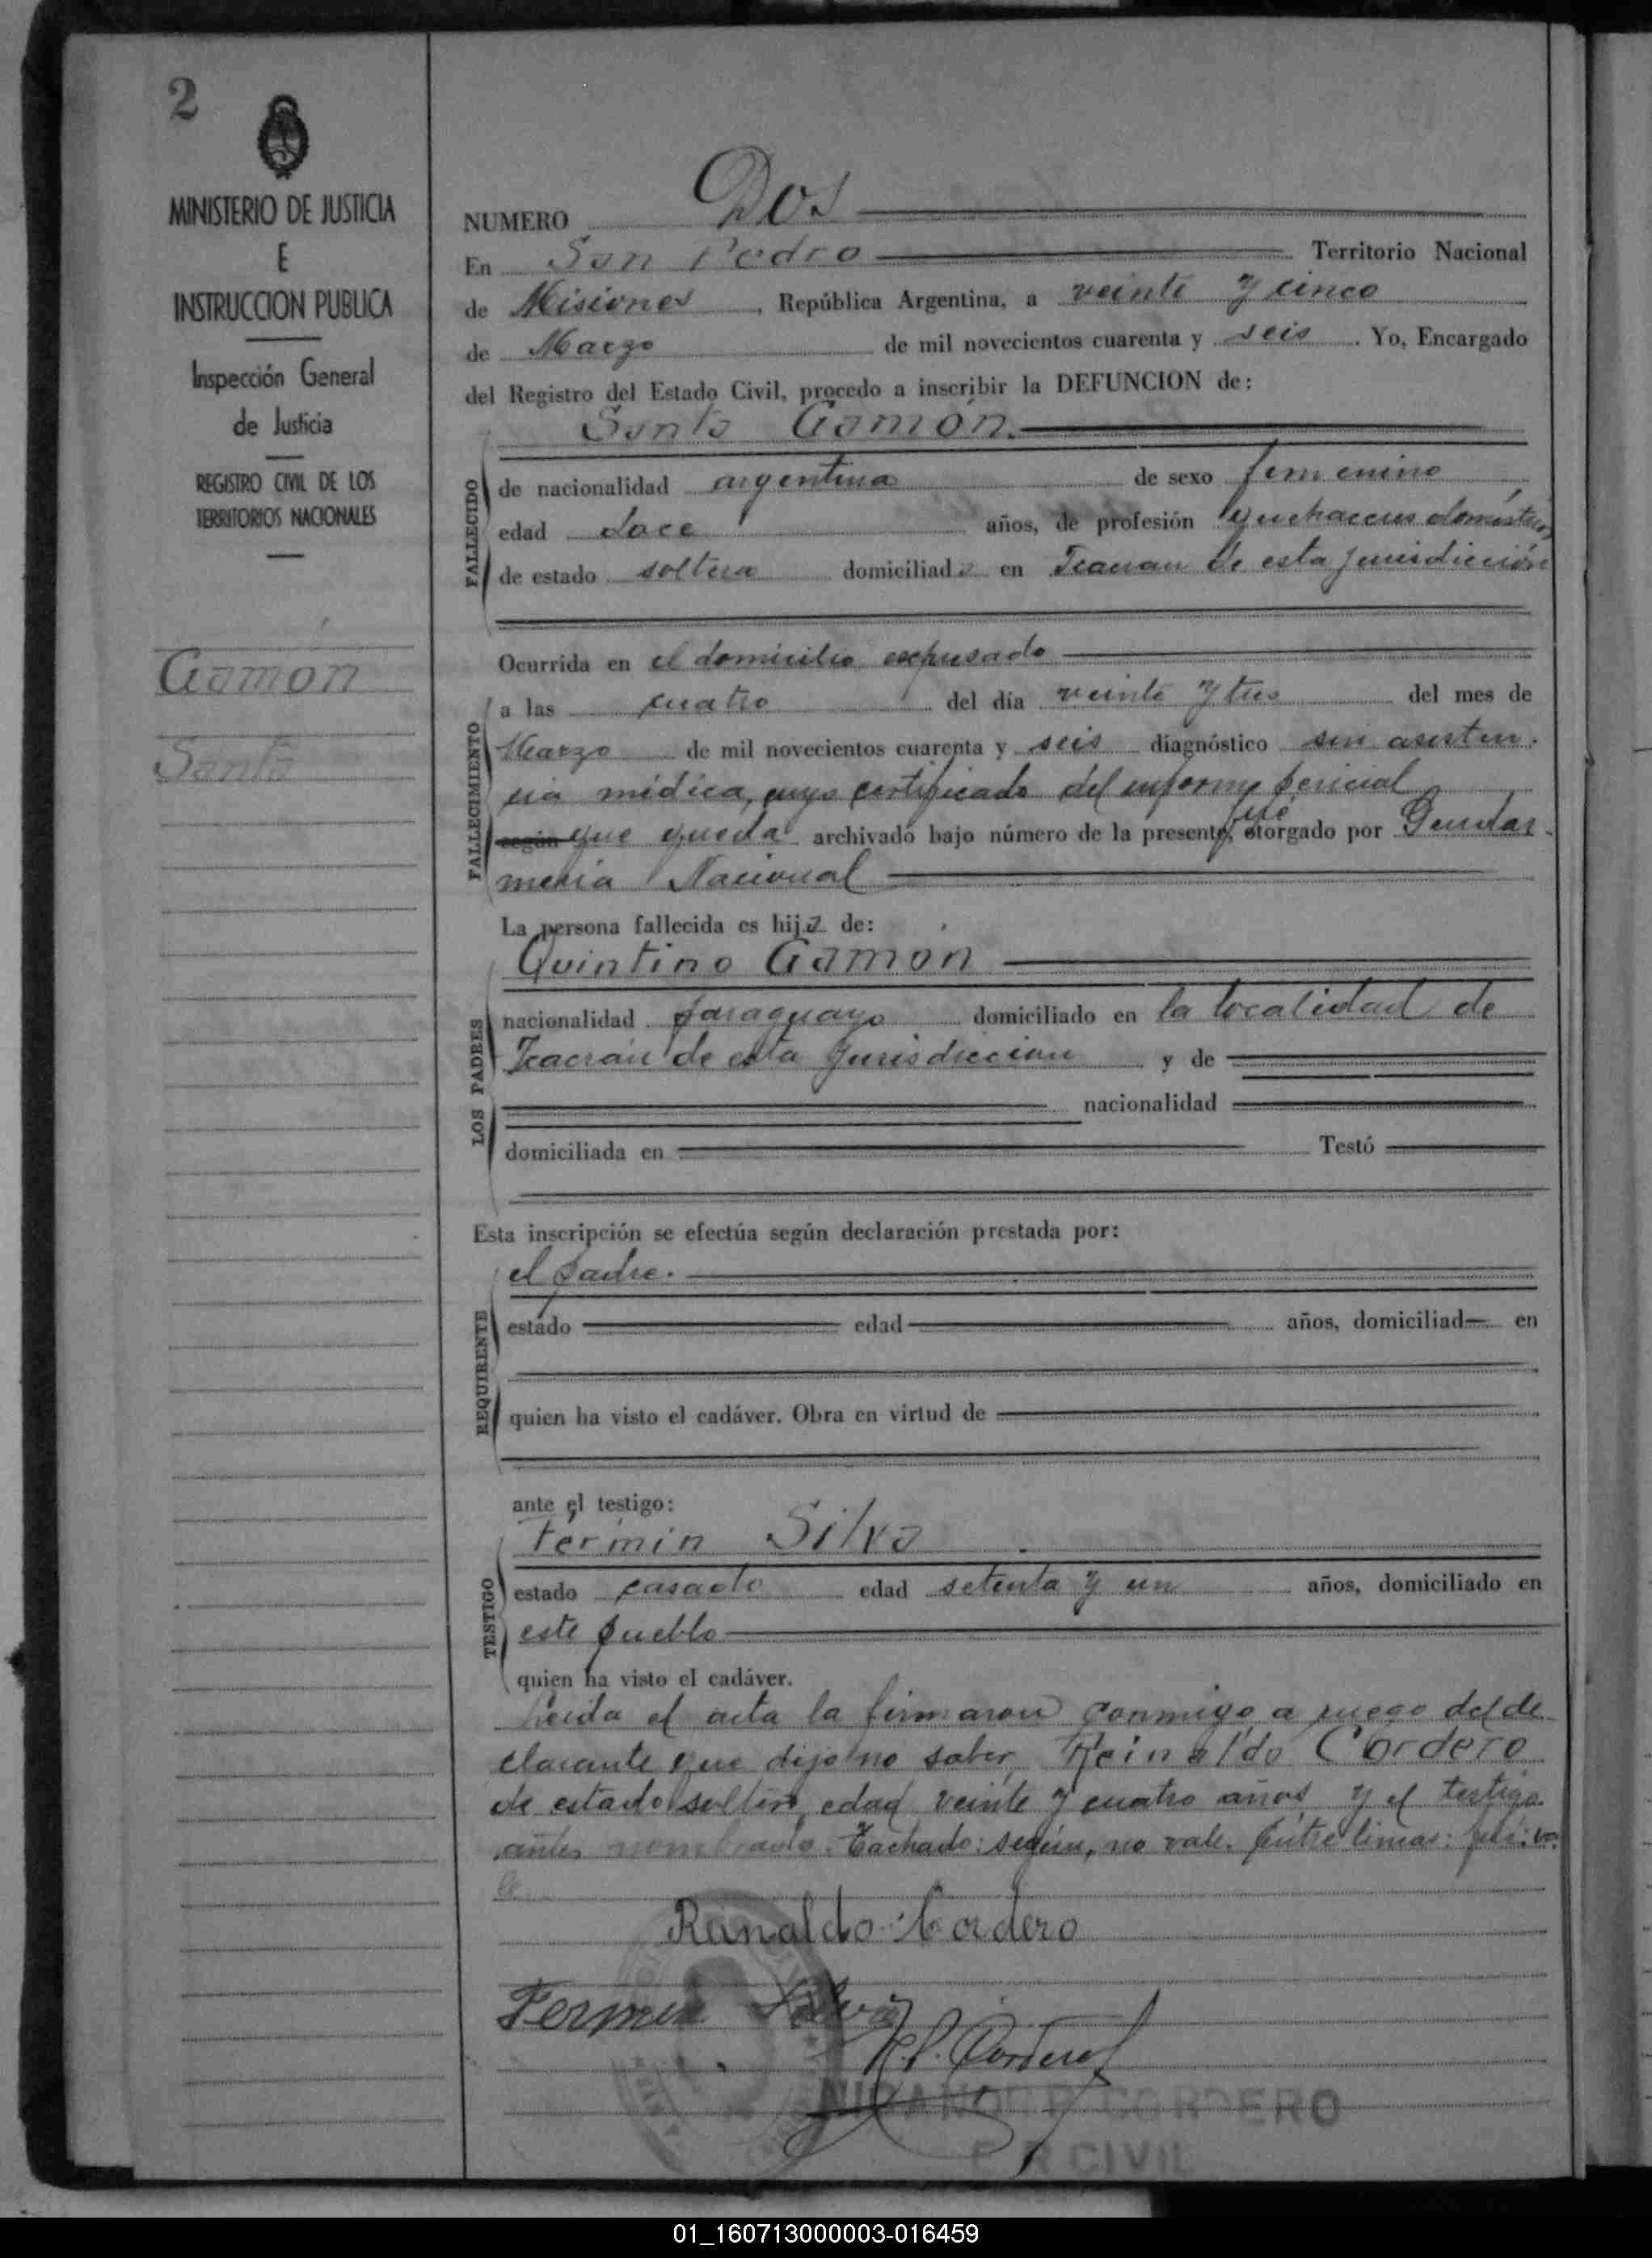 2
MINISTERIO DE JUSTICIA
E
INSTRUCCION PUBLICA
Inspección General
de Justicia
REGISTRO CIVIL DE LOS
TERRITORIOS NACIONALES
Gamón
Santa
NUMERO Dos
En San Pedro Territorio Nacional
de Misiones, República Argentina, a veinte y cinco
de Marzo de mil novecientos cuarenta y seis. Yo, Encargado
del Registro del Estado Civil, procedo a inscribir la DEFUNCION de:
Santa Gamón.
FALLECIDO
de nacionalidad argentina de sexo femenino
edad doce años, de profesión quehaceres domésticos
de estado soltera domiciliada en de esta jurisdicción
Ocurrida en el domicilio expresado
FALLECIMIENTO
a las cuatro del día veinte y tres del mes de
Marzo de mil novecientos cuarenta y seis diagnóstico sin asisten-
cia médica, cuyo certificado del informe pericial
según que queda archivado bajo número de la presente, fué otorgado por Gendar-
mería Nacional
La persona fallecida es hija de:
Quintino Gamón
LOS PADRES
nacionalidad paraguayo domiciliado en la localidad de
de esta jurisdicción y de
nacionalidad
domiciliada en Testó
Esta inscripción se efectúa según declaración prestada por:
el padre.
REQUIRENTE
estado edad años, domiciliad en
quien ha visto el cadáver. Obra en virtud de
ante el testigo:
Fermín Silva
TESTIGO
estado casado edad setenta y un años, domiciliado en
este pueblo
quien ha visto el cadáver.
Leida el acta la firmaron conmigo a ruego del de
clarante que dijo no saber, Reinaldo Cordero
de estado soltero, edad veinte y cuatro años y el testigo
antes nombrado. Tachado: según, no vale. Entre lineas: fué: va
le
Reinaldo Cordero
Fermin Silva
N.P. Cordero
NICANOR P. CORDERO
CIVIL
01_160713000003-016459